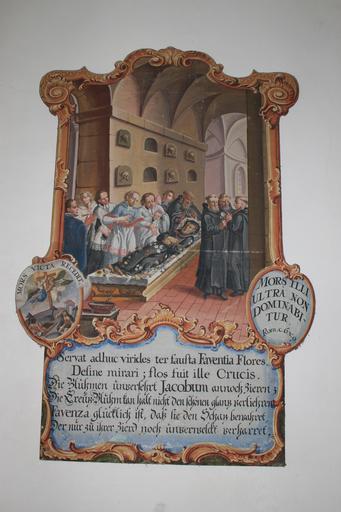 MORS VICTA RECEDIT
MORS ILLI
ULTRA NON
DOMINABI
TUR
Rom. c. 6. v. 9
Servat adhuc virides ter fausta Faventia Flores.
Desine mirari; flos fuit ille Crucis.
Die Blühmen unversehrt Jacobum annoch zieren;
Die Creutz Blühm kan halt nicht den schönen glantz verliehren
Favenza glücklich ist, daß sie den Schatz bewahret
Der nur zu ihrer Zierd noch unverwelckt verharret.